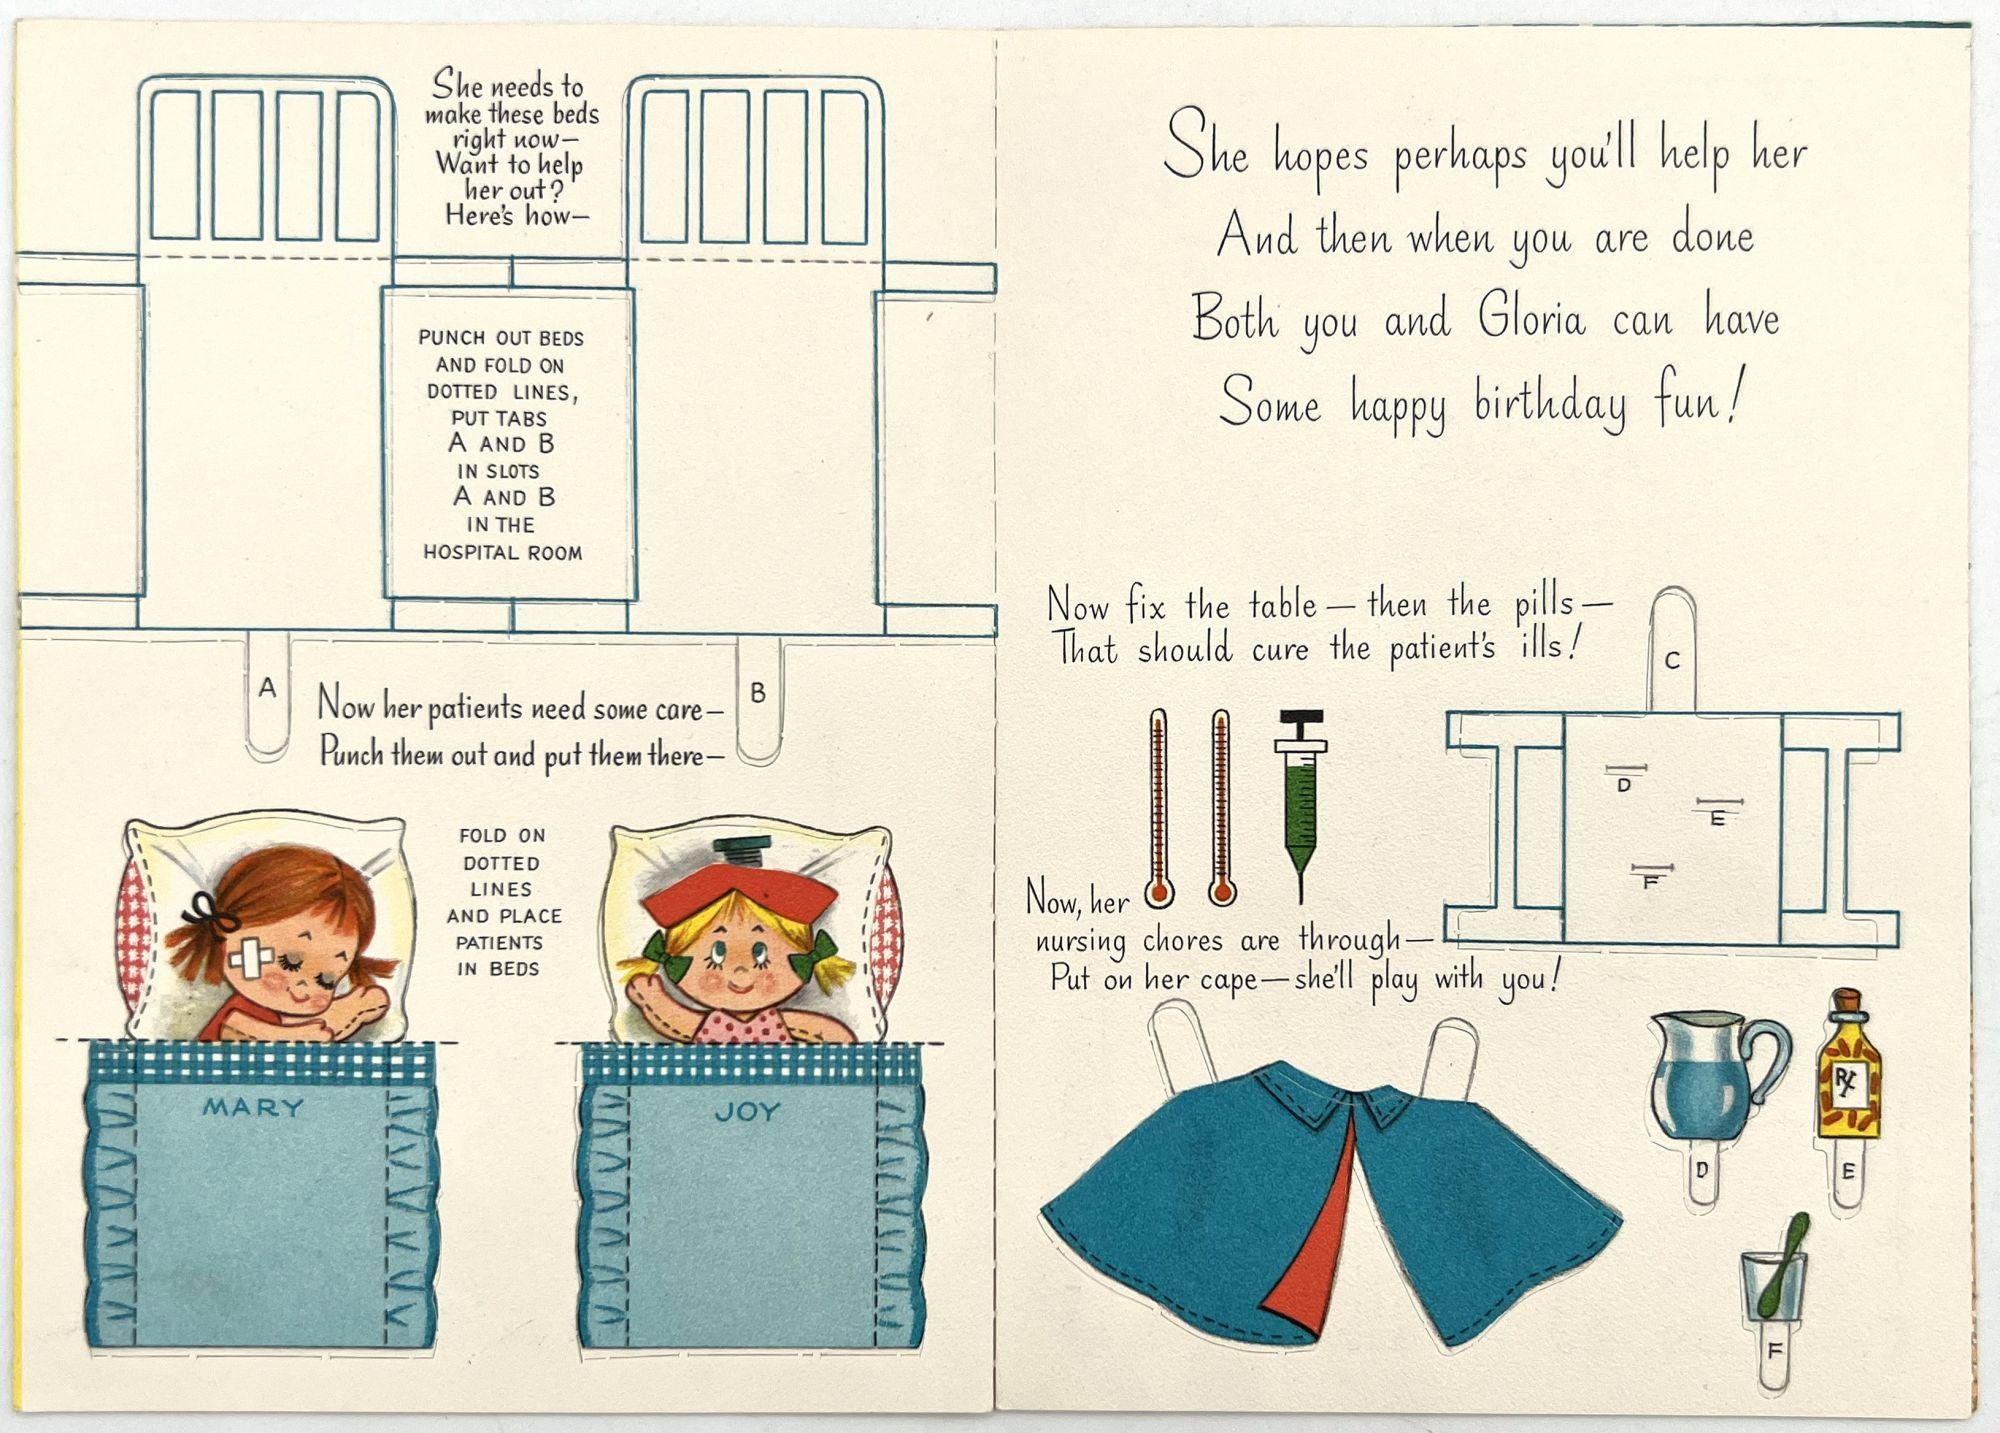 She needs to
make these beds
right now—
Want to help
her out?
Here's how—
PUNCH OUT BEDS
AND FOLD ON
DOTTED LINES,
PUT TABS
A AND B
IN SLOTS
A AND B
IN THE
HOSPITAL ROOM
A
B
Now her patients need some care—
Punch them out and put them there—
FOLD ON
DOTTED
LINES
AND PLACE
PATIENTS
IN BEDS
MARY
JOY
She hopes perhaps you'll help her
And then when you are done
Both you and Gloria can have
Some happy birthday fun!
Now fix the table — then the pills —
That should cure the patient's ills!
C
D
E
F
Now, her
nursing chores are through—
Put on her cape—she'll play with you!
Rx
D
E
F